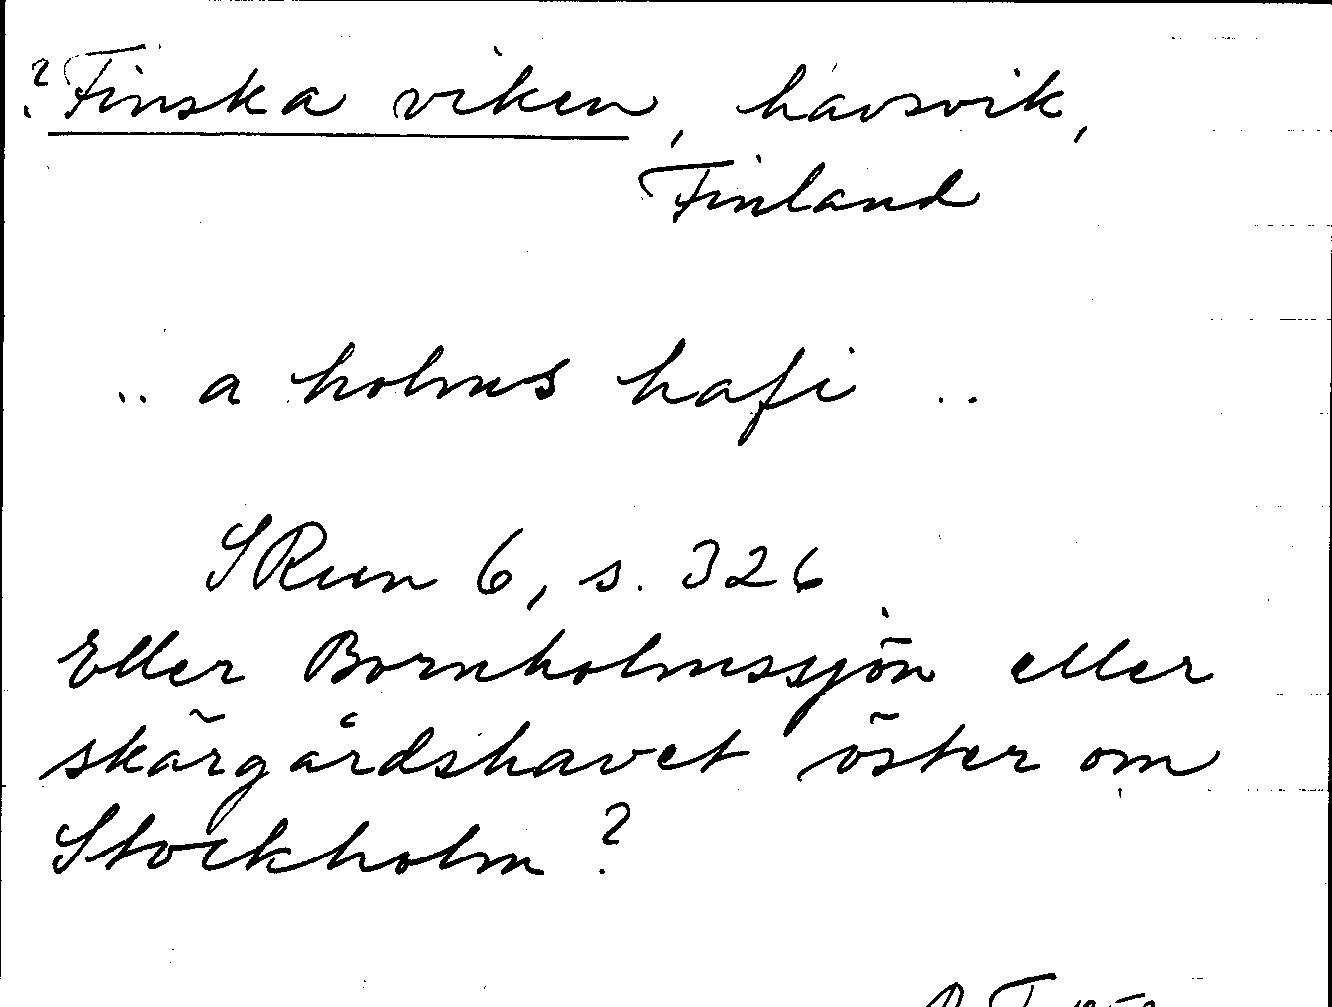 ? Finska viken, havsvik,
Finland
.. a holms hafi ..
SRun 6, s. 326
Eller Bornholmssjön eller
skärgårdshavet öster om
Stockholm?